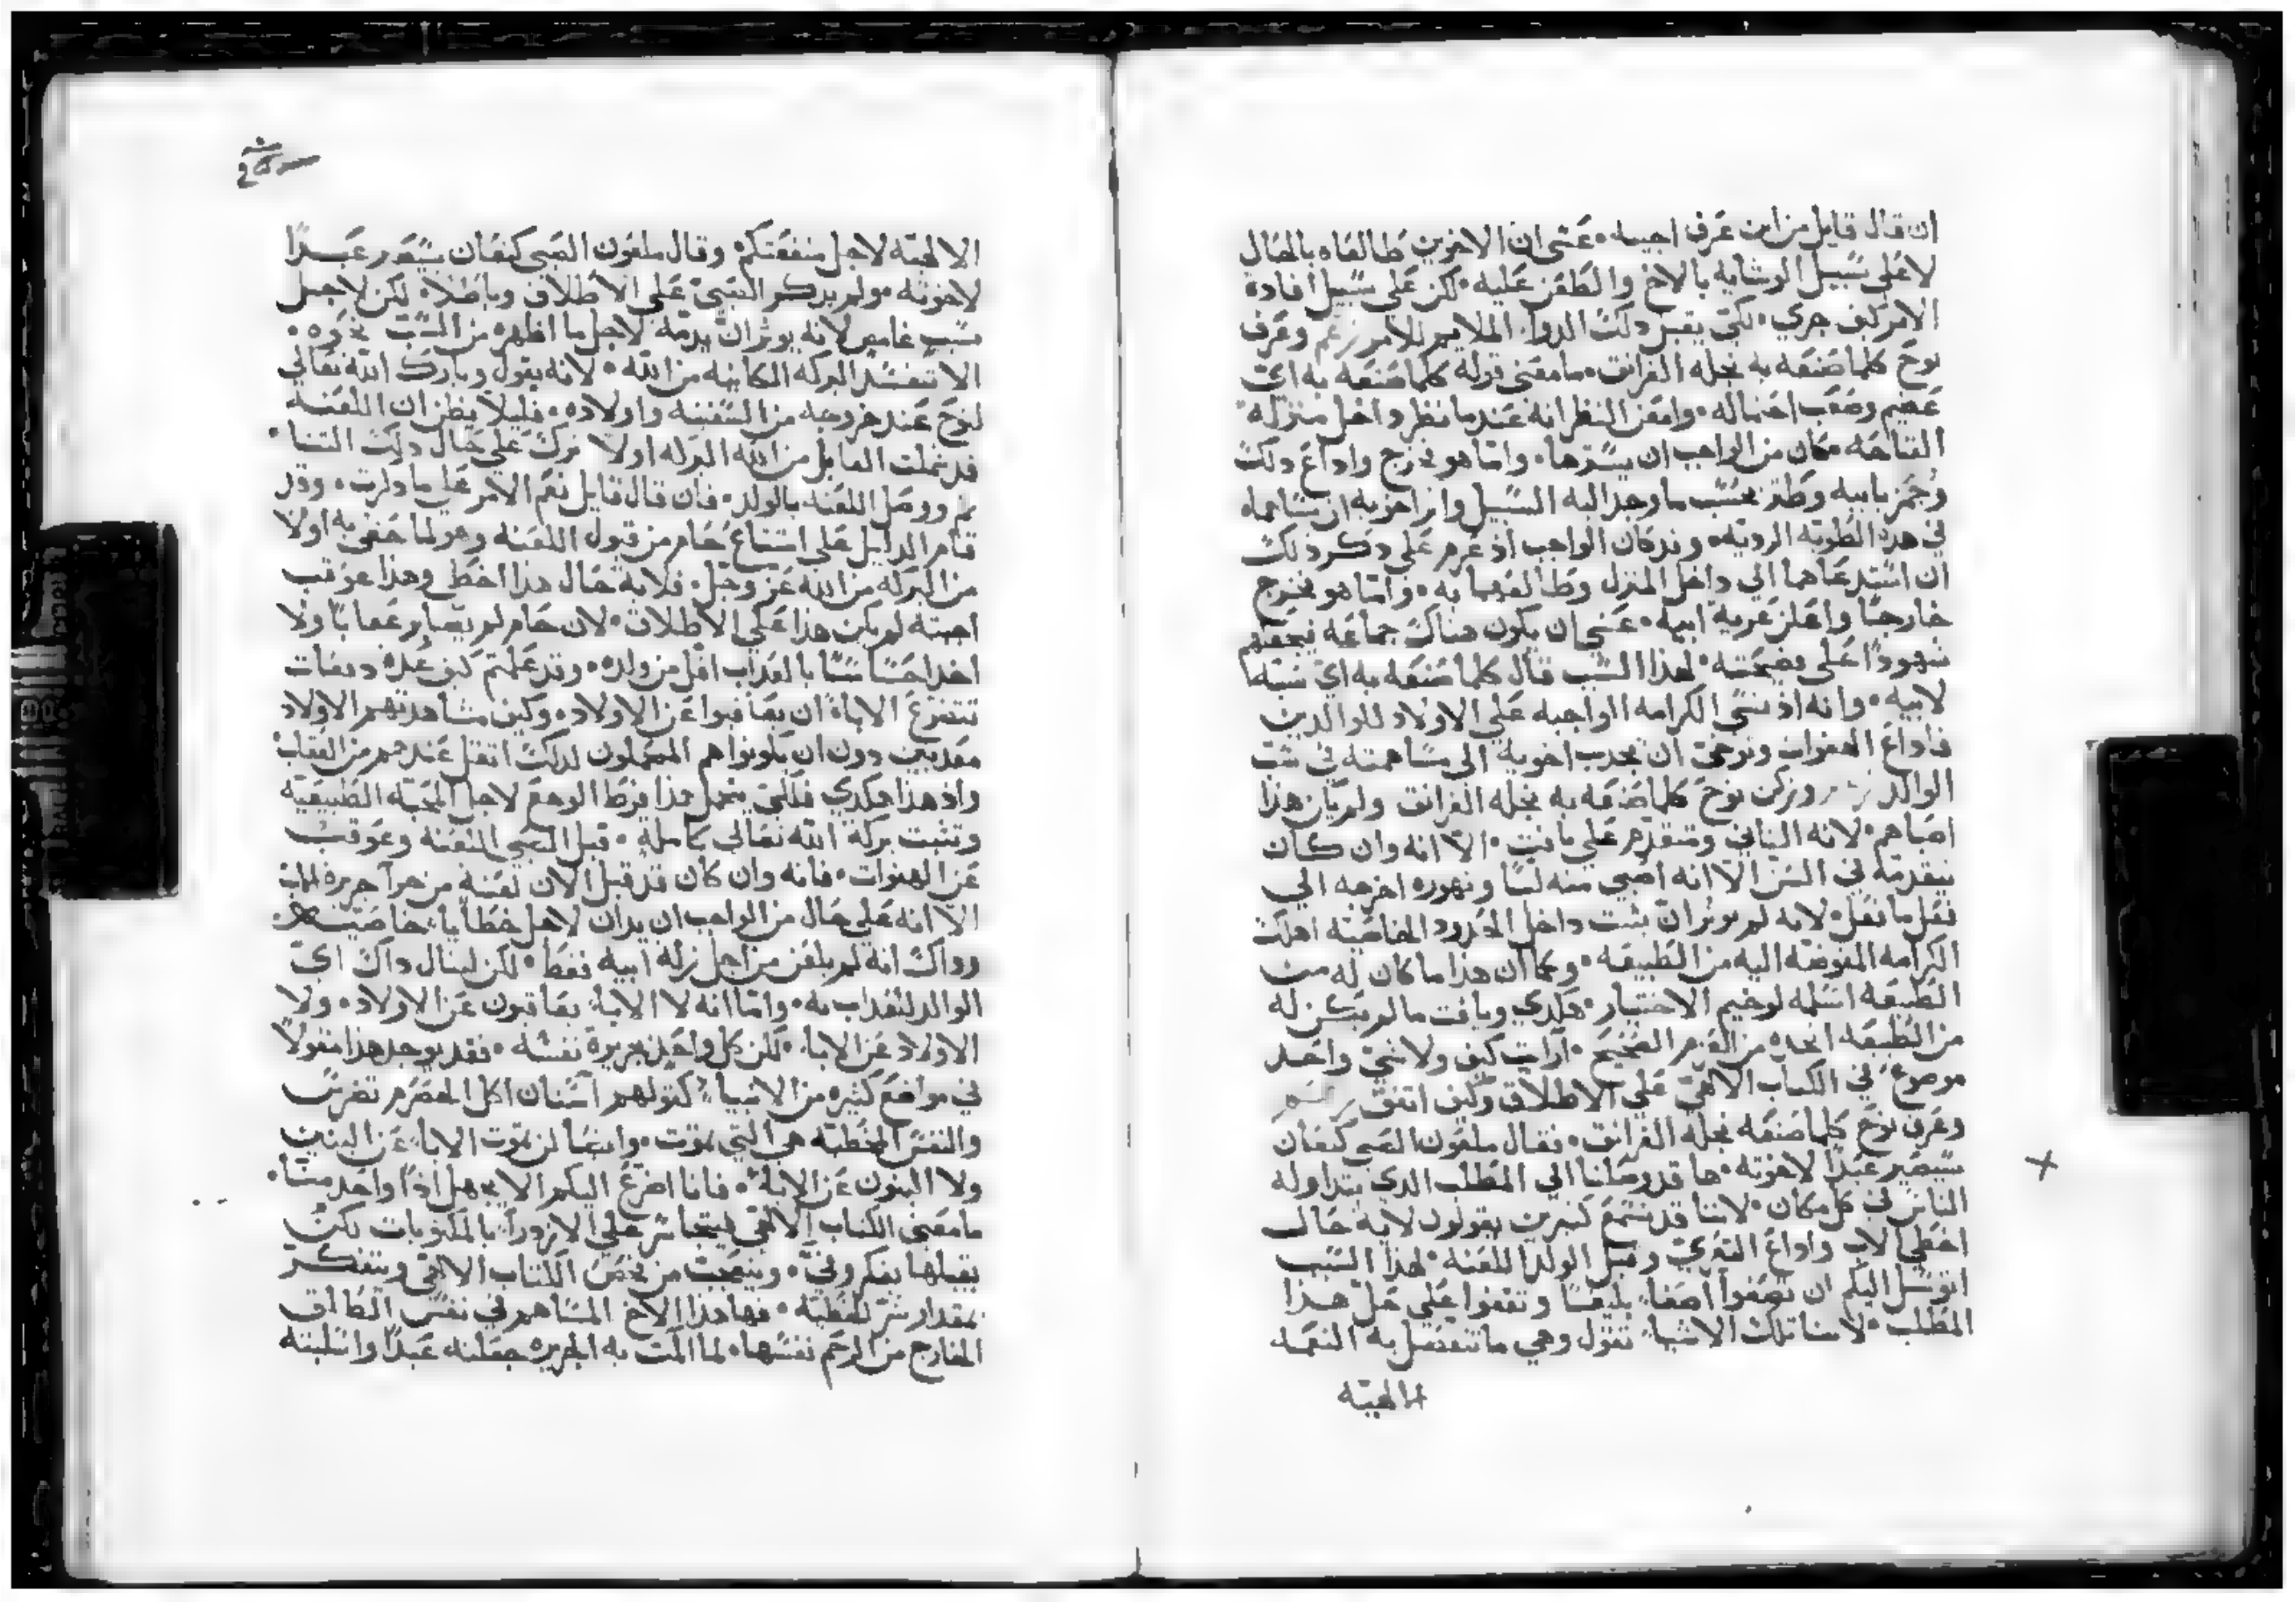 ان قال قايل من اين عرف اجيبه عسى ان الاخوين طالعاه بالحال
لا على سبيل الوشايه بالاخ والطعن عليه لكن على سبيل افادة
الامر كيف جري لكي يقبل دلك الدواء الملايم للامر زعم وعرف
نوح كلما صنعه به نجله الفرانق ما معنى قوله كلما صنعه به اي
عضيم وصعب احتماله وامعن النظر انه عندما نظر داخل منزله
القباحه كان من الواجب ان يسترها واما هو فخرج واداع دلك
وجمز بابيه وطنز بحسب ما وجد اليه السبيل وابر اخويه ان يساهماه
في هده الطويه الرديه وقد كان الواجب اذ عزم على دكر ذلك
ان استدعاهما الي داخل المنزل وطالعهما به واما هو فخرج
خارجا واعلن عرية ابيه عسى ان يكون هناك جماعه فيجعلهم
شهودا على فضيحته لهذا السبب قال كلما صنعه به اي سبه
لابيه وانه اذ نسي الكرامه الواجبه على الاولاد للوالدين
فاداع الهفوات وتوخى ان يجدب اخويه الى مساهمته في سب
الوالد نوح كلما صنعه به نجله الفرانق ولم يكن هذا
اصباهم لانه الثاني ومتقدم على يافت الا انه وان كان
يتقدمه في السن الا انه اصبي منه لبا وتهوره اخرجه الي
فعل ما فعل لانه لم يوثر ان يثبت داخل الحدود الخاصيه اهلك
الكرامه المفوضه اليه من الطبيعه وكما ان هذا ما كان له من
الطبيعه اسلمه لوخيم الاختيار هكدي ويافت ما لم يكن له
من الطبيعه اتخده من العزم الصحيح ارايت كيف ولا شي واحد
موضوع في الكتاب الالهي على الاطلاق وكيف اتفق
وعرف نوح كلما صنعه نجله الفرانق فقال ملعون الصبي كنعان
سيصير عبدا لاخوته ها قد وصلنا الي المطلب الدي يتداوله
الناس في كل مكان لاننا قد نسمع كثيرين يقولون لاية حال
اخطي الاب واداع التعري وقبل الولد اللعنه لهذا السبب
اتوسل اليكم ان تصغوا اصغاء بليغا وتقفوا على حل هدا
المطلب لاننا تلك الاشياء نقول وهي ما تتفضل به النعمه
الالهيه
الالهيه لاجل منفعتكم وقال ملعون الصبي كنعان سيصير عبدا
لاخوته ولم يدكر الصبي على الاطلاق وباطلا لكن لاجل
سبب غامض لانه يوثر ان يدمه لاجل ما اظهره من السبب نحوه
الا تفسد البركه الكاينه من الله لانه يقول وبارك الله تعالي
لنوح عند خروجه من السفينه واولاده فليلا يظن ان اللعنه
قد شملت القابل من الله البركه اولا ترك على حال دلك الثناء
ووصل اللعنه بالولد فان قال قايل نعم الامر على ما دكرت وقد
قام الدليل على امتناع حام من قبول اللعنه وهو لما حضي به اولا
من البركه من الله عز وجل فلاية حال هذا اخطى وهذا عوقب
اجبته لم يكن هذا على الاطلاق لان حام لم يصابر عقابا ولا
اخد احساسا بالعداب اقل من ولده وقد علمتم كيف عدة دفعات
تتضرع الاباء ان يعاقبوا عن الاولاد وكيف مشاهدتهم الاولاد
معدبين دون ان يكونوا هم المحتملون لدلك اثقل عندهم من العقاب
واذ هذا هكدي فلكي يتحمل هذا فرط الوجع لاجل المحبه الطبيعيه
وتثبت بركة الله تعالي كامله قبل الصبي اللعنه وعوقب
عن الهفوات فانه وان كان قد قبل الان لعنة من جرا جريرة الاب
الا انه على حال من الواجب ان يدان لاجل خطايا خاصيته
وداك انه لم يلعن من اجل زلة ابيه فقط لكن لينال داك اي
الوالد للعداب به واما انه لا الاباء يعاقبون عن الاولاد ولا
الاولاد عن الاباء لكن كل واحد بجريرة نفسه فقد يوجد هذا مقولا
في مواضع كثيره من الانبياء كقولهم اسنان اكل الحصرم تضرس
والنفس المخطيه هي التي تموت وايضا لن تموت الاباء عن البنين
ولا البنون عن الاباء فانا اضرع اليكم الا يجهل اذا واحد منا
ما معنى الكتاب الالهي فيتجاسر على الازدراء بالمكتوبات لكن
يقبلها بفكر وفي ويتعجب من فحص الكتاب الالهي ويتفكر
بمقدار شر الخطيه فها هذا الاخ المساهم في نفس الطلق
الخارج من الرحم نفسها لما المت به الجريره جعلته عبدا واسلبته